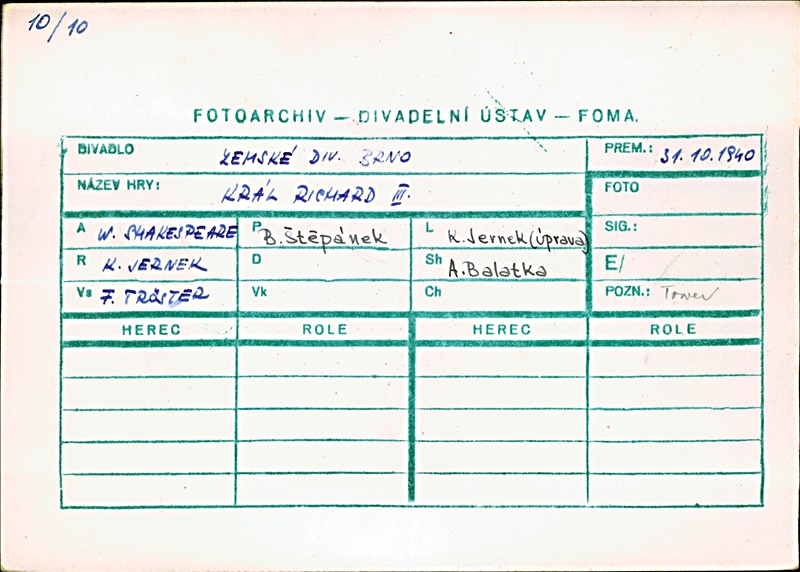 10/10
FOTOARCHIV — DIVADELNÍ ÚSTAV — FOMA.
DIVADLO ZEMSKÉ DIV. BRNO PREM.: 31.10.1940
NÁZEV HRY: KRÁL RICHARD III. FOTO
A W. SHAKESPEARE P B. Štěpánek L K. Jernek (úprava) SIG.:
R K. JERNEK D Sh A. Balatka E/
Vs F. TRÖSTER Vk Ch POZN.: Tower
HEREC ROLE HEREC ROLE